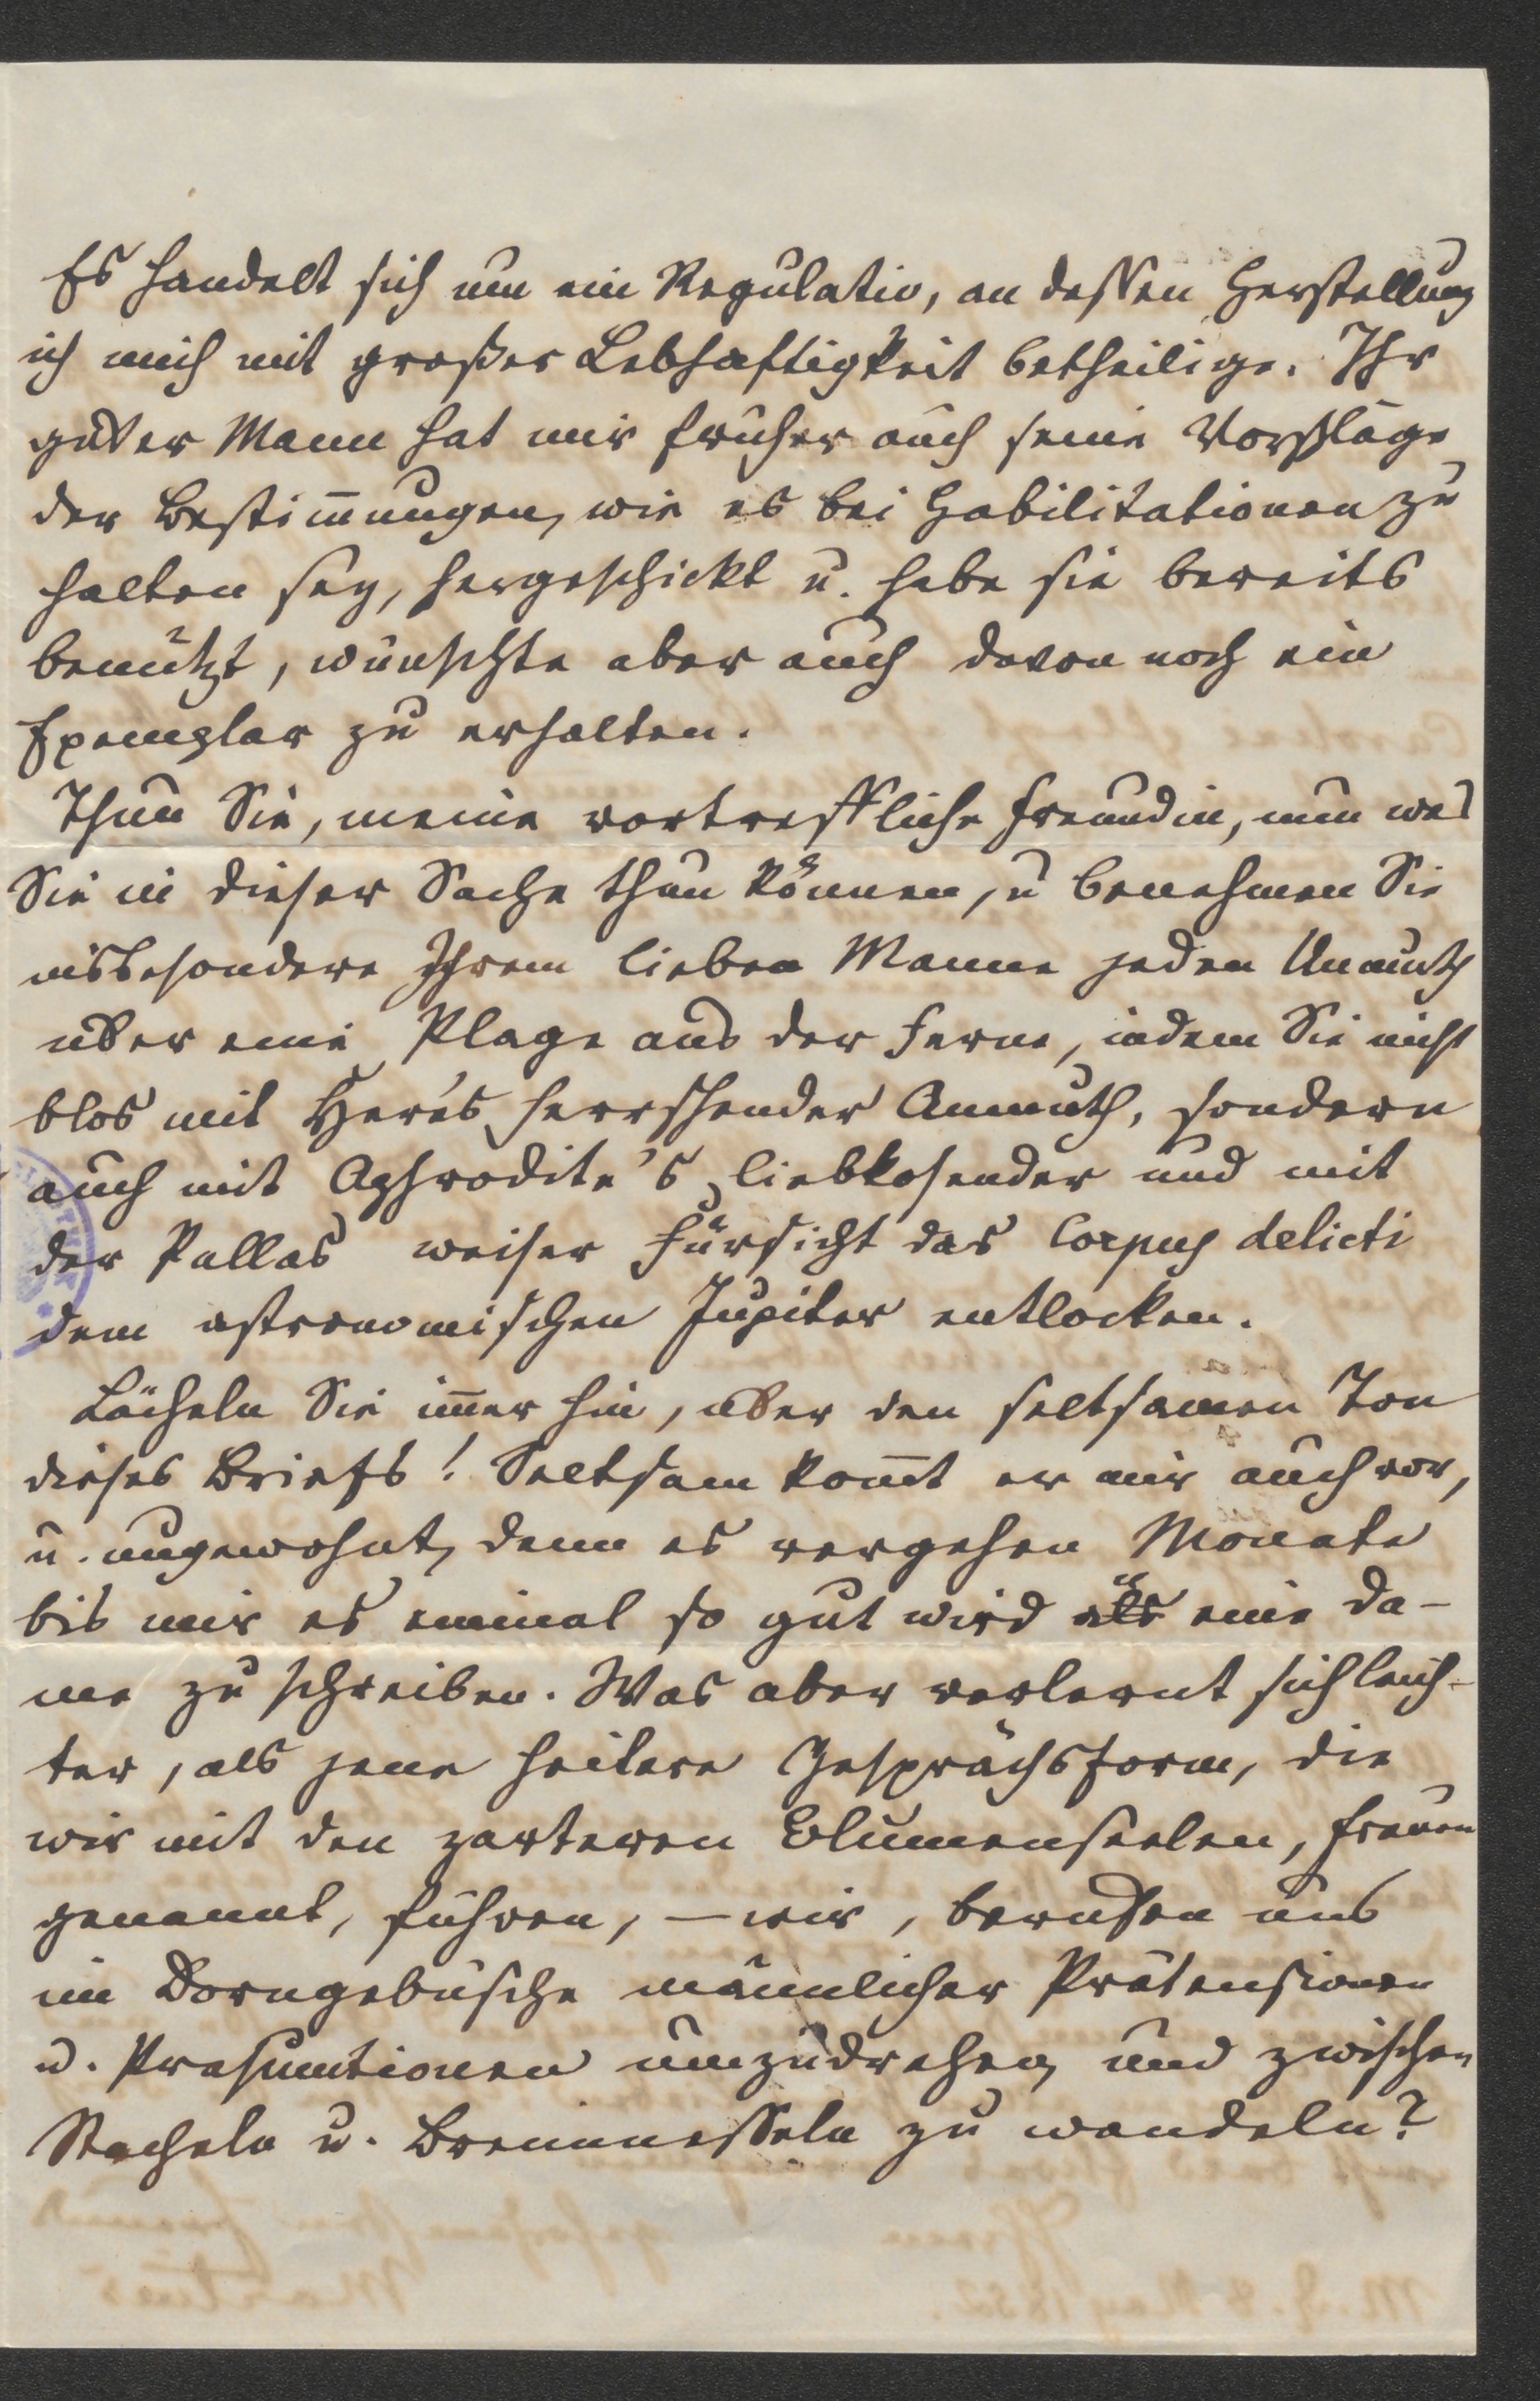 Es handelt sich um ein Regulativ, an dessen Herstellung
ich mich mit großer Lebhaftigkeit betheilige. Ihr
guter Mann hat mir früher auch seine Vorschläge
der Bestim̄ungen, wie es bei Habilitationen zu
halten sey, hergeschickt u. habe sie bereits
benützt, wünschte aber auch davon noch ein
Exemplar zu erhalten.
Thun Sie, meine vortreffliche Freundin, nun was
Sie in dieser Sache thun können, u benehmen Sie
insbesondere Ihrem lieben Manne jeden Unmuth
über eine Plage aus der Ferne, indem Sie nicht
blos mit Here's herrschender Anmuth, sondern
auch mit Aphrodite's liebkosender und mit
der Pallas weiser Fürsicht das Corpus delicti
dem astronomischen Jupiter entlocken.
Lächeln Sie im̄er hin, über den seltsamen Ton
dieses Briefs! Seltsam kom̄t er mir auch vor,
u. ungewohnt, denn es vergehen Monate
bis mir es einmal so gut wird eine Da-
me zu schreiben. Was aber verlernt sich leich-
ter, als jene heitere Gesprächsform, die
wir mit den zarteren Blumenseelen, Frauen
genannt, führen, – wir, berufen uns
im Dorngebüsche männlicher Prätensionen
u. Präsumtionen umzudrehen, und zwischen
Stacheln u. Brennnesseln zu wandeln?